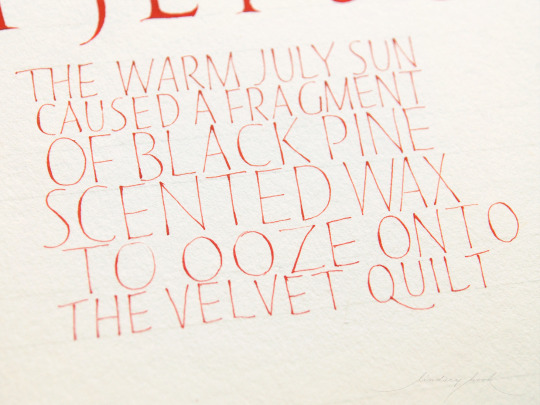 THE WARM JULY SUN
CAUSED A FRAGMENT
OF BLACK PINE
SCENTED WAX
TO OOZE ONTO
THE VELVET QUILT